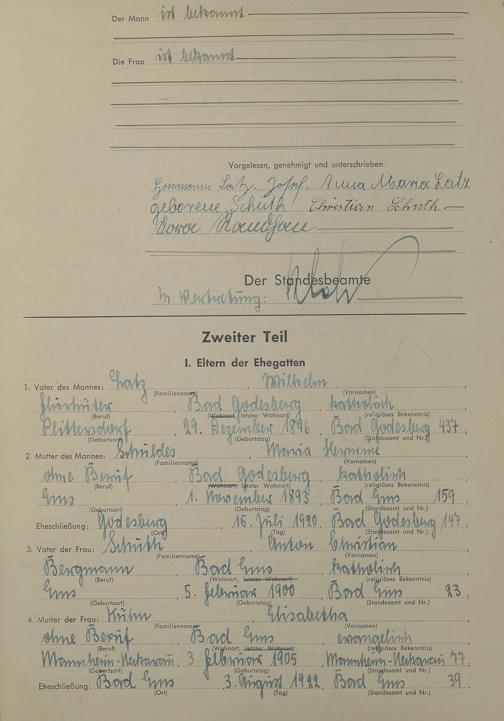 Der Mann ist bekannt
Die Frau ist bekannt
Vorgelesen, genehmigt und unterschrieben
Hermann Latz, Josef. Anna Maria Latz
geborene Schuth Christian Schuth
Der Standesbeamte
In Vertretung:
Zweiter Teil
I. Eltern der Ehegatten
1. Vater des Mannes: Latz, Wilhelm
(Familienname) (Vornamen)
Bad Godesberg, katholisch
(Beruf) (Wohnort, letzter Wohnort) (religiöses Bekenntnis)
Plittersdorf, 29. Dezember 1896, Bad Godesberg 437
(Geburtsort) (Geburtstag) (Standesamt und Nr.)
2. Mutter des Mannes: Schuldes, Maria
(Familienname) (Vornamen)
ohne Beruf, Bad Godesberg, katholisch
(Beruf) (Wohnort, letzter Wohnort) (religiöses Bekenntnis)
Ems, 1. November 1893, Bad Ems 159
(Geburtsort) (Geburtstag) (Standesamt und Nr.)
Eheschließung: Godesberg, 16. Juli 1920, Bad Godesberg 147
(Ort) (Tag) (Standesamt und Nr.)
3. Vater der Frau: Schuth, Anton Christian
(Familienname) (Vornamen)
Bergmann, Bad Ems, katholisch
(Beruf) (Wohnort, letzter Wohnort) (religiöses Bekenntnis)
Ems, 5. Februar 1900, Bad Ems 23
(Geburtsort) (Geburtstag) (Standesamt und Nr.)
4 Mutter der Frau: Kühn, Elisabetha
(Familienname) (Vornamen)
ohne Beruf, Bad Ems, evangelisch
(Beruf) (Wohnort, letzter Wohnort) (religiöses Bekenntnis)
Mannheim-Neckarau, 3. Februar 1905, Mannheim-Neckarau 77
(Geburtsort) (Geburtstag) (Standesamt und Nr.)
Eheschließung: Bad Ems, 3. August 1922, Bad Ems 39
(Ort) (Tag) (Standesamt und Nr.)